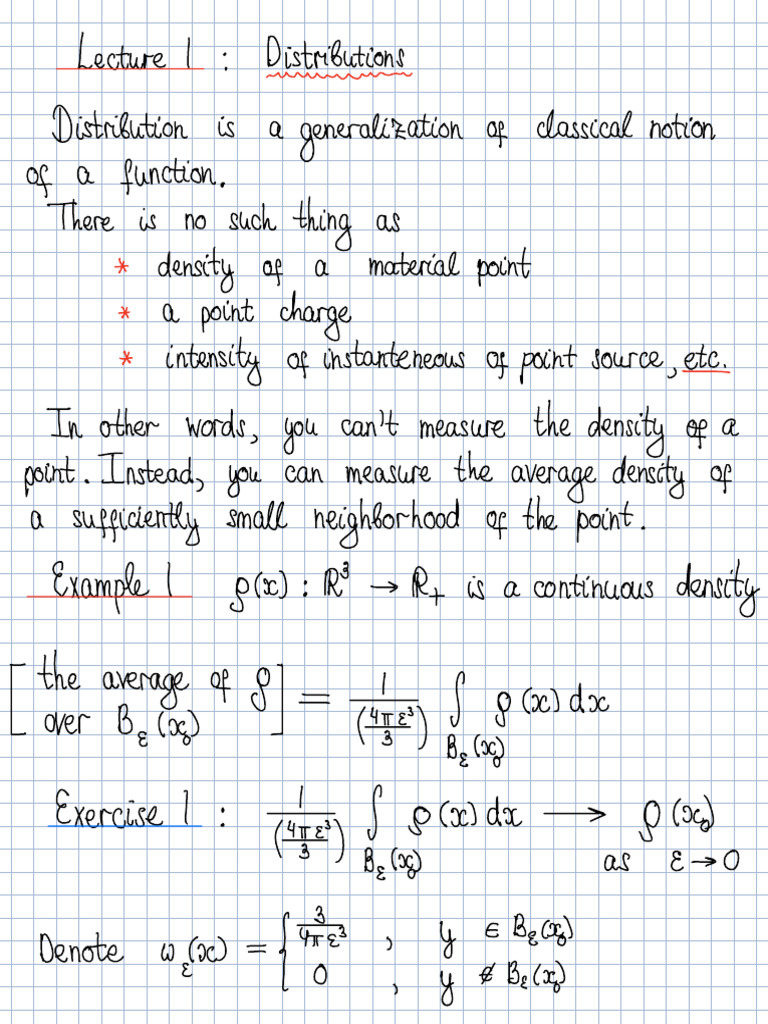 Lecture 1 : Distributions
Distribution is a generalization of classical notion
of a function.
There is no such thing as
* density of a material point
* a point charge
* intensity of instanteneous of point source, etc.
In other words, you can't measure the density of a
point. Instead, you can measure the average density of
a sufficiently small neighborhood of the point.
Example 1 ρ(x) : ℝ³ → ℝ₊ is a continuous density
[the average of ρ over B_ε(x₀)] = 1/(4πε³/3) ∫_{B_ε(x₀)} ρ(x) dx
Exercise 1 : 1/(4πε³/3) ∫_{B_ε(x₀)} ρ(x) dx → ρ(x₀) as ε → 0
Denote ω_ε(x) = { 3/4πε³ , y ∈ B_ε(x₀)
0 , y ∉ B_ε(x₀)